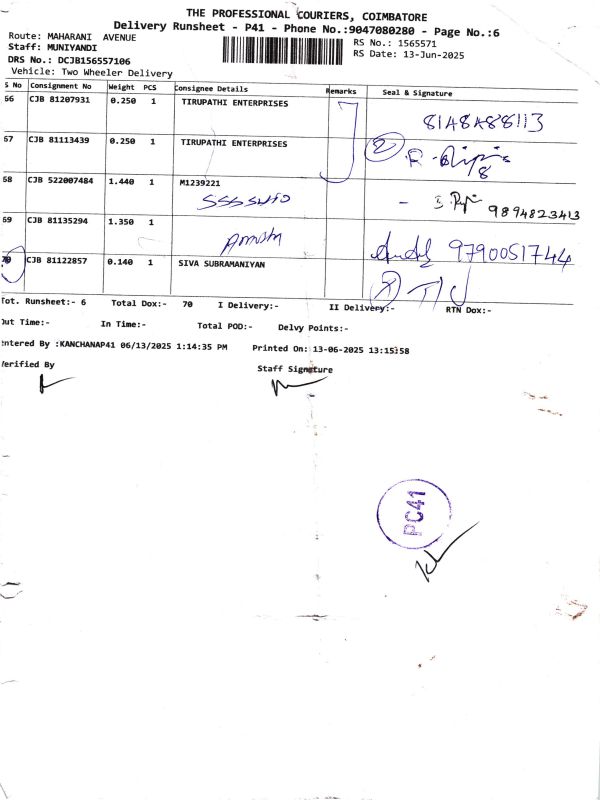 THE PROFESSIONAL COURIERS, COIMBATORE
Delivery Runsheet - P41 - Phone No.:9047080280 - Page No.:6
Route: MAHARANI AVENUE
RS No.: 1565571
Staff: MUNIYANDI
RS Date: 13-Jun-2025
DRS No.: DCJB156557106
Vehicle: Two Wheeler Delivery
S No Consignment No Weight PCS Consignee Details Remarks Seal & Signature
66 CJB 81207931 0.250 1 TIRUPATHI ENTERPRISES
67 CJB 81113439 0.250 1 TIRUPATHI ENTERPRISES
68 CJB 522007484 1.440 1 M1239221
9894823413
69 CJB 81135294 1.350 1
9790051744
70 CJB 81122857 0.140 1 SIVA SUBRAMANIYAN
Tot. Runsheet:- 6 Total Dox:- 70 I Delivery:- II Delivery:- RTN Dox:-
Out Time:- In Time:- Total POD:- Delvy Points:-
Entered By :KANCHANAP41 06/13/2025 1:14:35 PM Printed On: 13-06-2025 13:15:58
Verified By Staff Signature
PC41